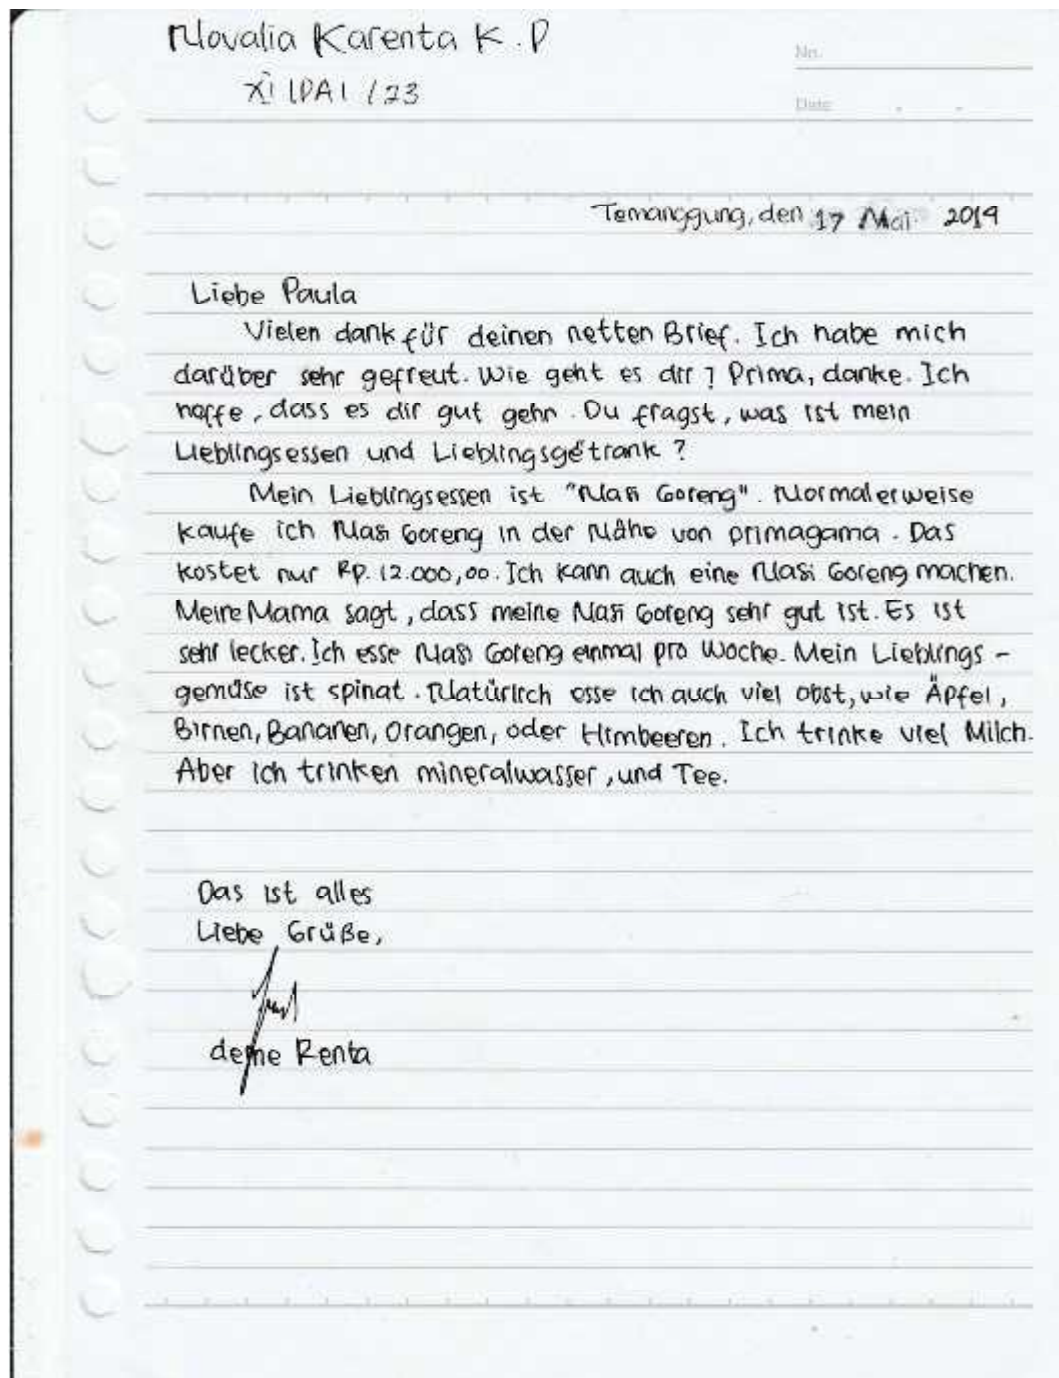 Novalia Karenta K. P
XI IPA 1 / 23
No.
Date
Temanggung, den 17 Mai 2019
Liebe Paula
Vielen dank für deinen netten Brief. Ich habe mich
darüber sehr gefreut. Wie geht es dir? Prima, danke. Ich
hoffe, dass es dir gut gehn. Du fragst, was ist mein
Lieblingsessen und Lieblingsgetrank?
Mein Lieblingsessen ist "Nasi Goreng". Normalerweise
kaufe ich Nasi Goreng in der Nähe von primagama. Das
kostet nur Rp. 12.000,00. Ich kann auch eine Nasi Goreng machen.
Meine Mama sagt, dass meine Nasi Goreng sehr gut ist. Es ist
sehr lecker. Ich esse Nasi Goreng einmal pro Woche. Mein Lieblings-
gemüse ist spinat. Natürlich esse ich auch viel obst, wie Äpfel,
Birnen, Bananen, Orangen, oder Himbeeren. Ich trinke viel Milch.
Aber ich trinken mineralwasser, und Tee.
Das ist alles
Liebe Grüße,
deine Renta